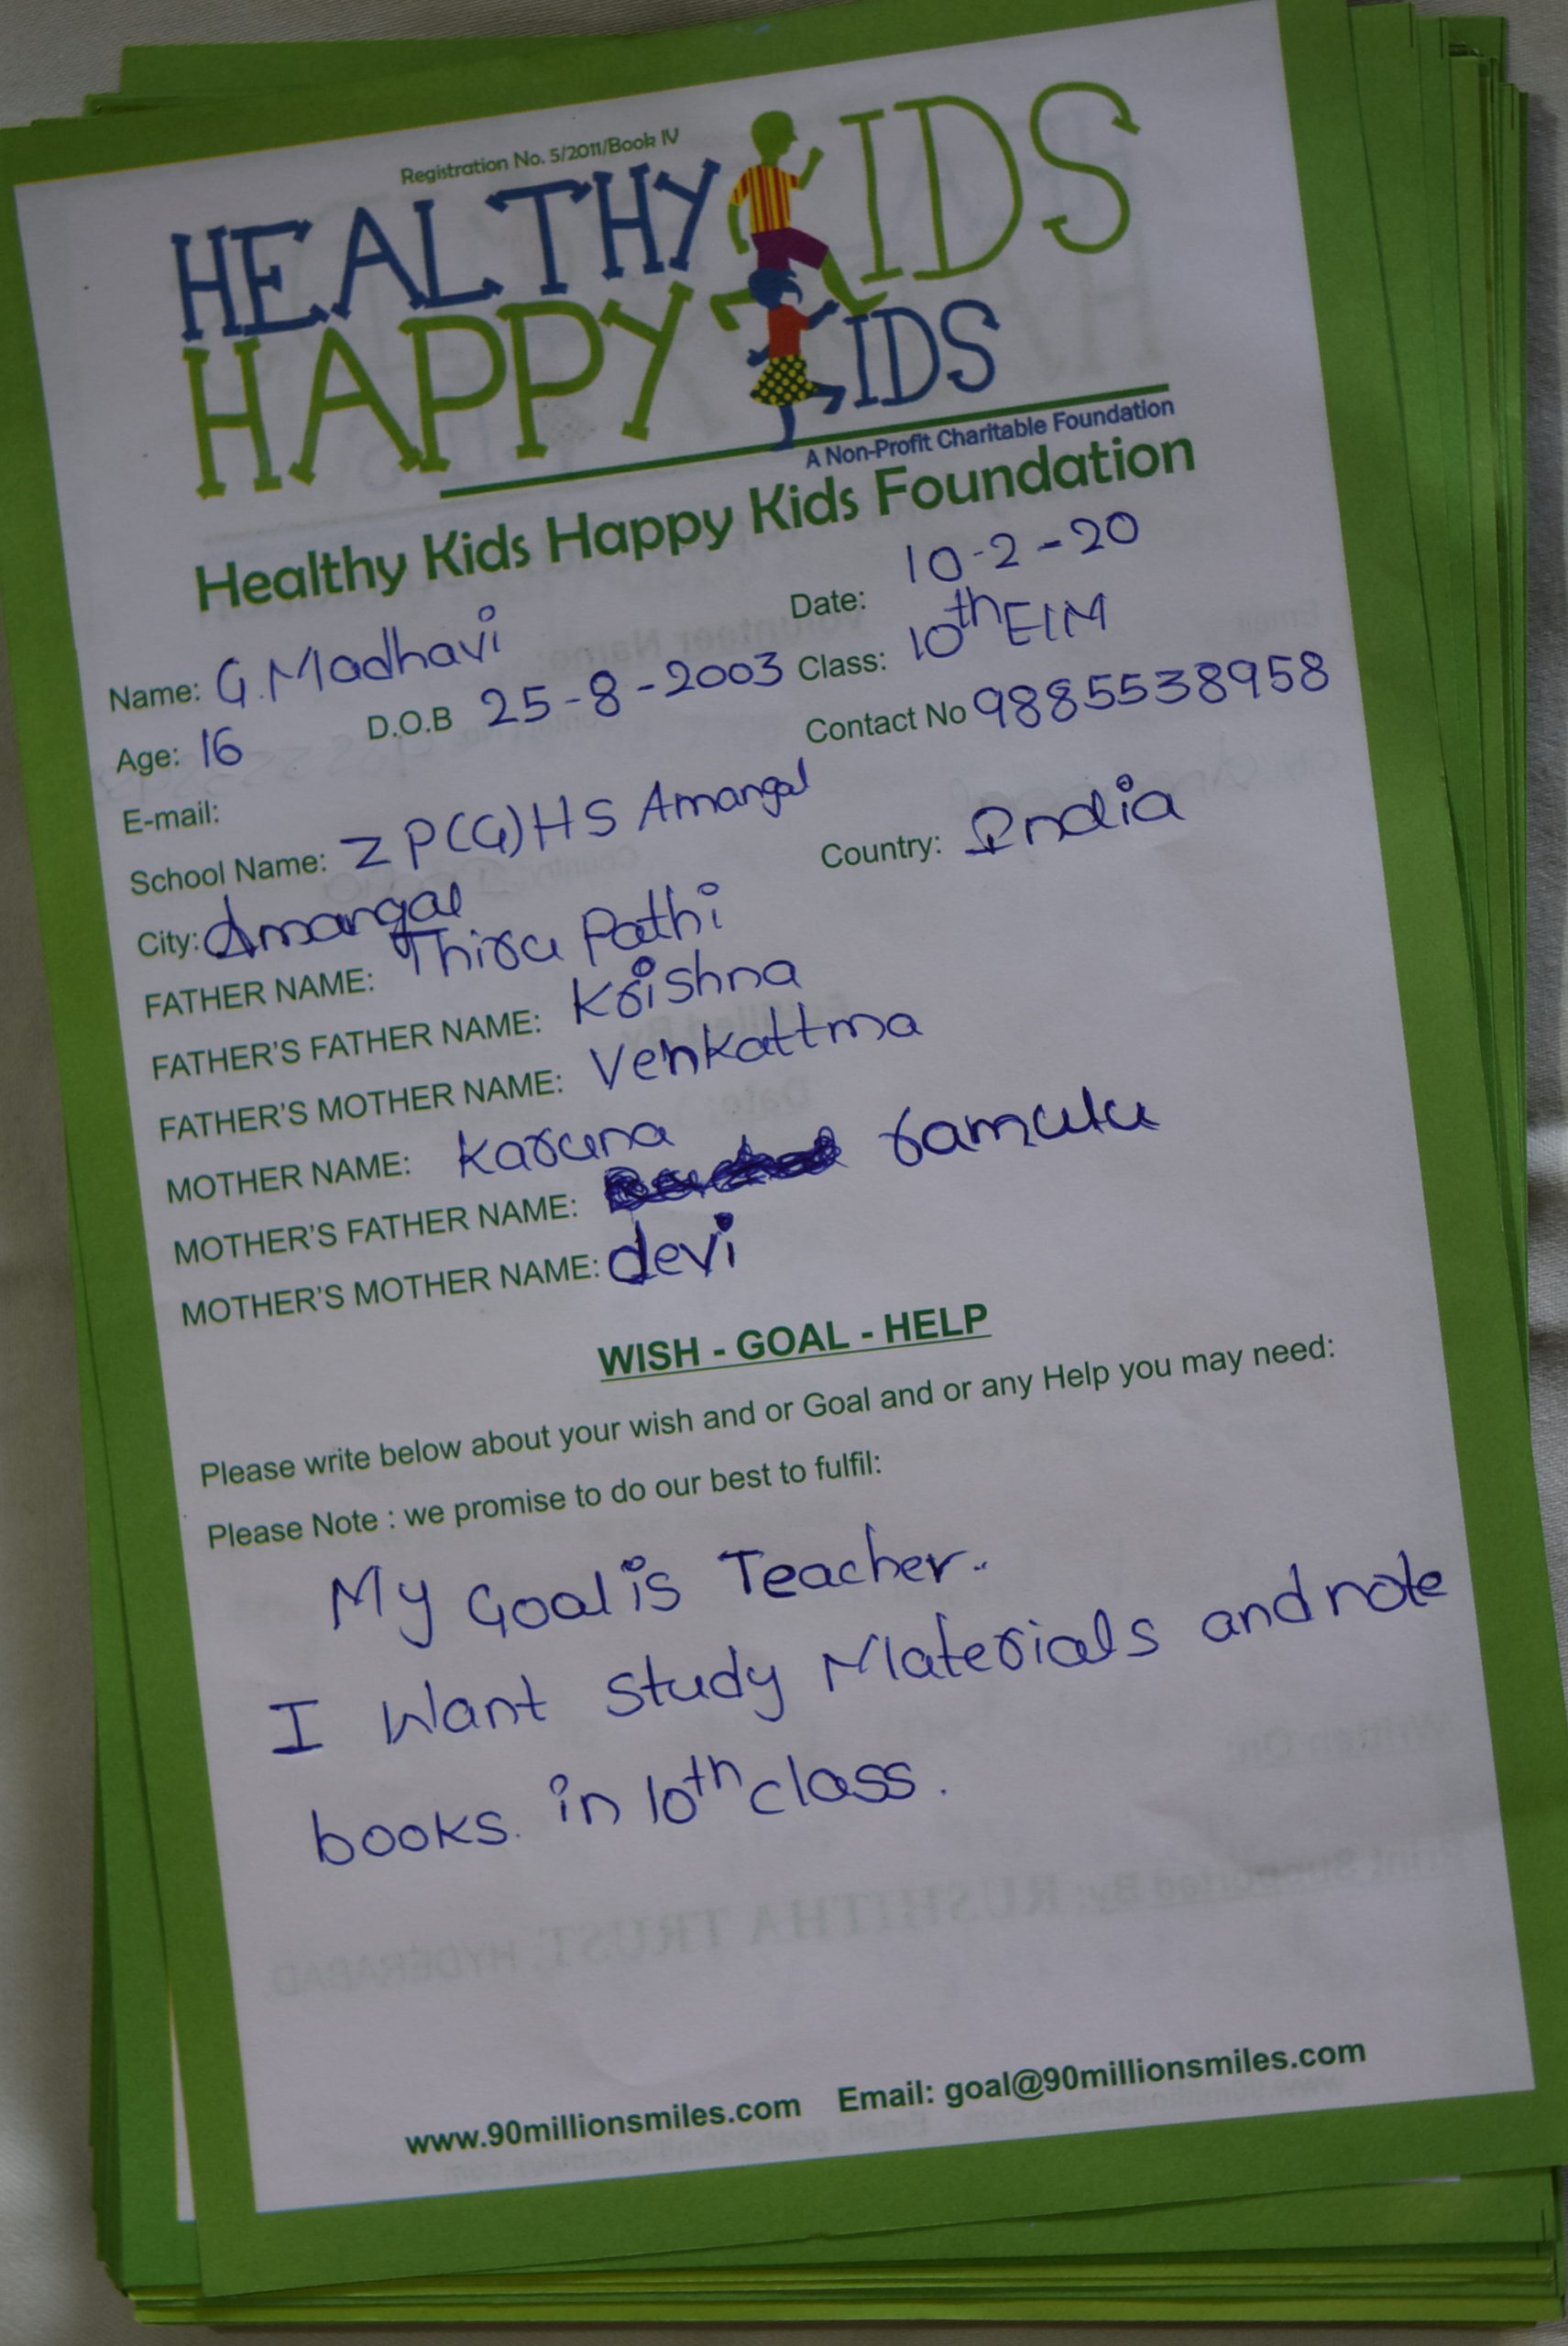 Registration No. 5/2011/Book IV
HEALTHY KIDS
HAPPY KIDS
A Non-Profit Charitable Foundation
Healthy Kids Happy Kids Foundation
Date: 10-2-20
Name: G.Madhavi
Class: 10th E/M
Age: 16 D.O.B 25-8-2003
Contact No 9885538958
E-mail:
School Name: ZP(G)HS Amangal
City: Amangal Country: India
FATHER NAME: Thiru Pathi
FATHER'S FATHER NAME: Krishna
FATHER'S MOTHER NAME: Venkattma
MOTHER NAME: Karuna
MOTHER'S FATHER NAME: ramulu
MOTHER'S MOTHER NAME: devi
WISH - GOAL - HELP
Please write below about your wish and or Goal and or any Help you may need:
Please Note : we promise to do our best to fulfil:
My Goal is Teacher.
I Want study Materials and note
books. in 10th class.
www.90millionsmiles.com Email: goal@90millionsmiles.com